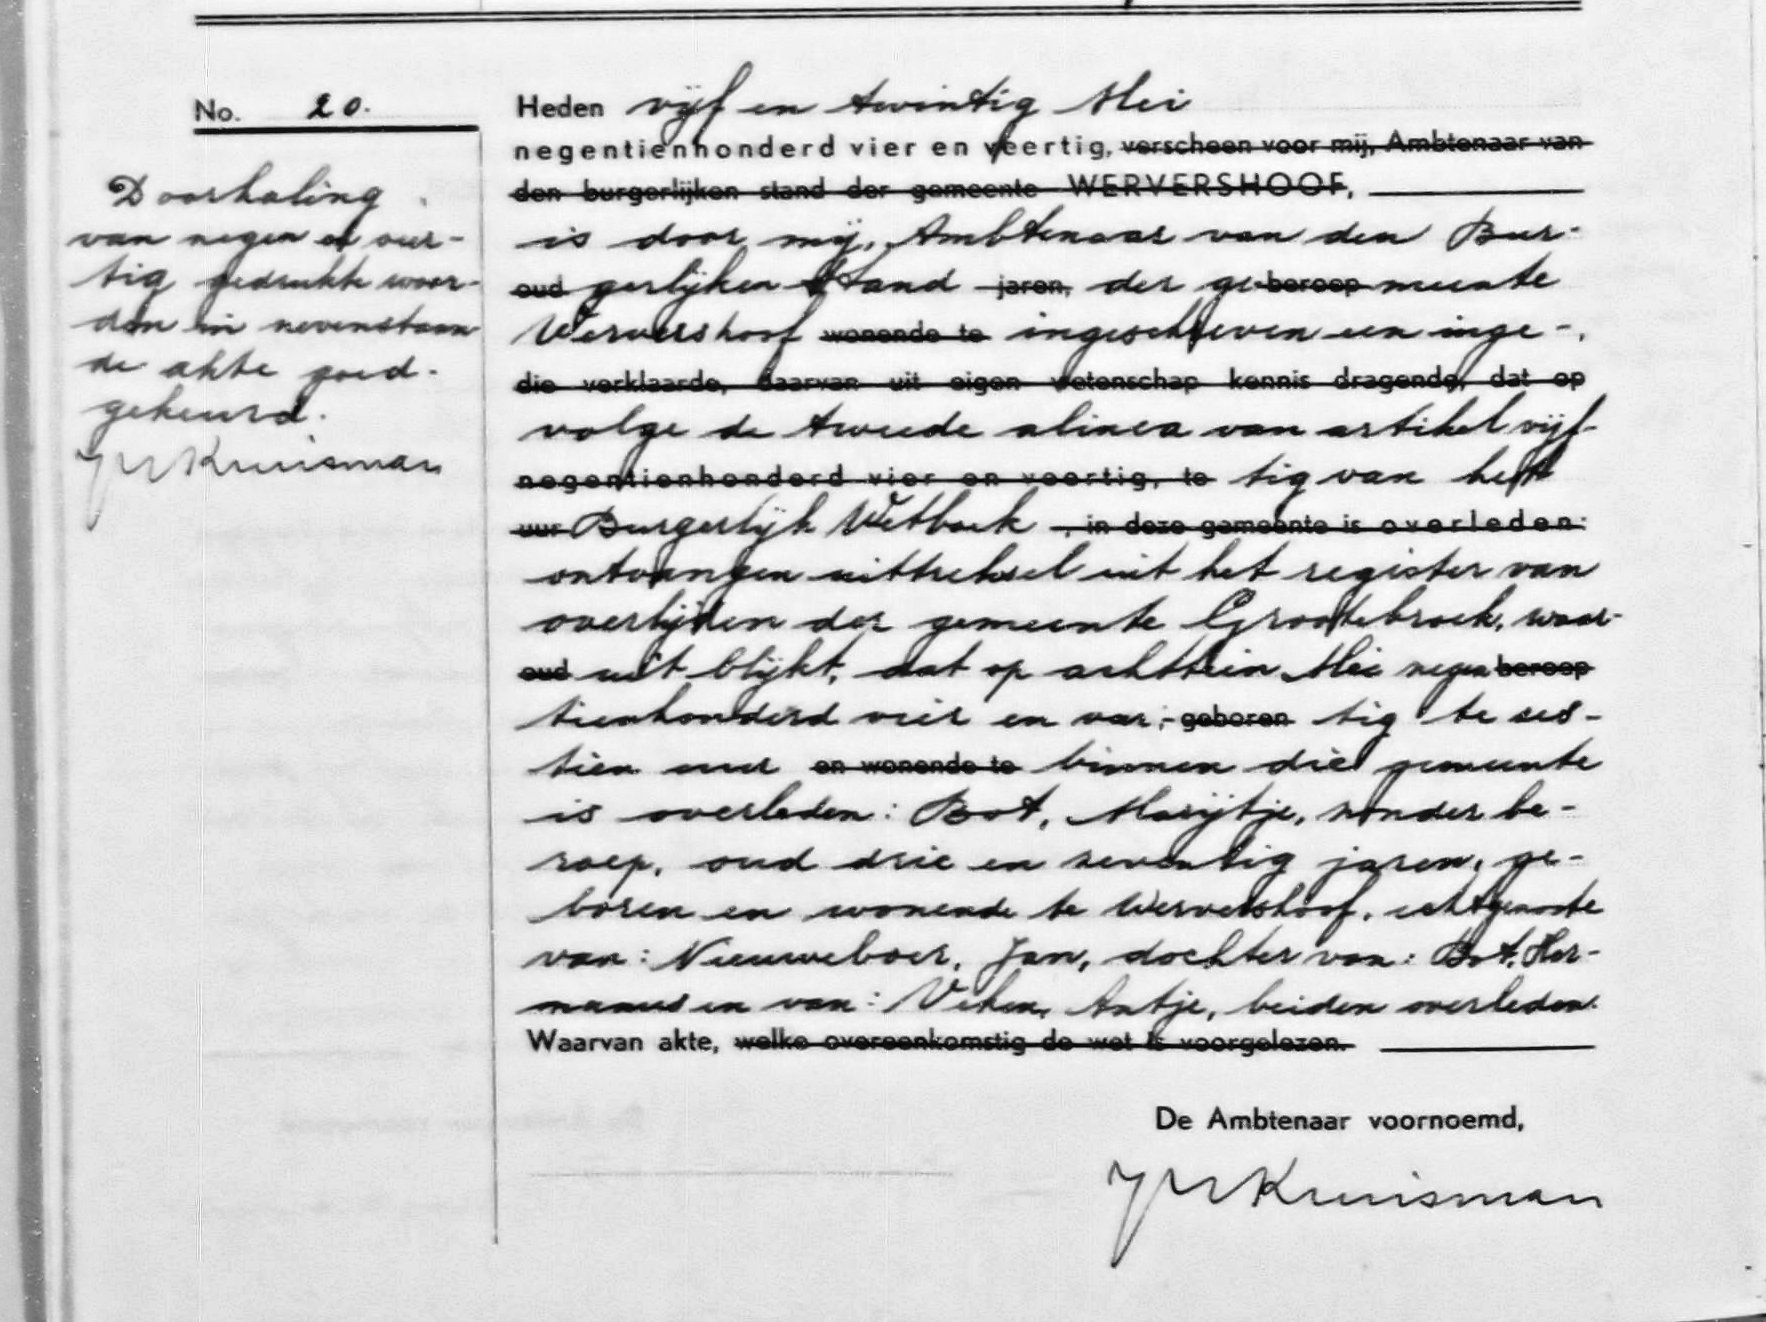 No. 20.
Doorhaling
van negen en veer-
tig gedrukte woor-
den in nevenstaan
de akte goed-
gekeurd.
Kruisman
Heden vijf en twintig Mei
negentienhonderd vier en veertig, verscheen voor mij, Ambtenaar van
den burgerlijken stand der gemeente WERVERSHOOF,
is door mij, Ambtenaar van den Bur-
oud gerlijken Stand jaren, der ge beroep meente
Wervershoof wonende te ingeschreven een inge-
die verklaarde, daarvan uit eigen wetenschap kennis dragende, dat op
volge de tweede alinea van artikel vijf-
negentienhonderd vier en veertig, te tig van het
uur Burgerlijk Wetboek , in deze gemeente is overleden:
ontvangen uittreksel uit het register van
overlijden der gemeente Grootebroek, waar-
oud uit blijkt, dat op achttien Mei negen beroep
tienhonderd vier en veer- geboren tig te zes-
tien uur en wonende te binnen die gemeente
is overleden: Bot, Marijtje, zonder be-
roep, oud drie en zeventig jaren, ge-
boren en wonende te Wervershoof, echtgenoote
van: Nieuweboer, Jan, dochter van: Bot, Her-
manus en van: Veken, Antje, beiden overleden.
Waarvan akte, welke overeenkomstig de wet is voorgelezen.
De Ambtenaar voornoemd,
Kruisman